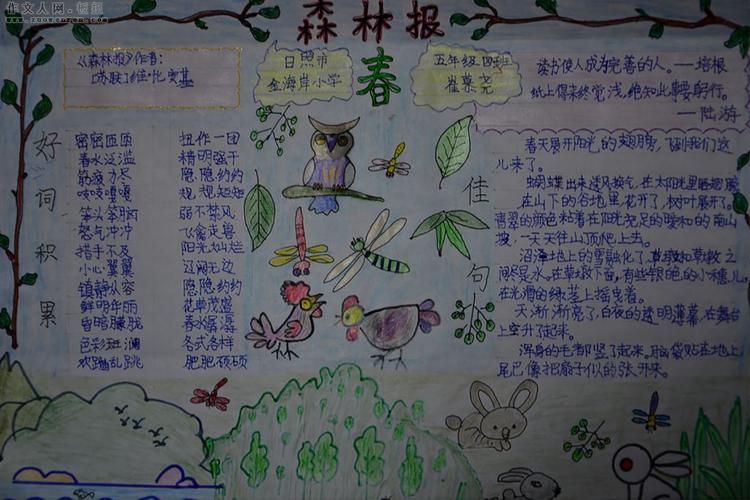 作文人网
森林报
春
《森林报》作者:
[苏联]维·比安基
日照市
金海岸小学
五年级四班
崔慕尧
读书使人成为完善的人。——培根
纸上得来终觉浅,绝知此事要躬行。
——陆游
好词积累
密密匝匝 扭作一团
春水泛滥 精明强干
筋疲力尽 隐隐约约
吱吱嘎嘎 规规矩矩
笨头笨脑 弱不禁风
怒气冲冲 飞禽走兽
措手不及 阳光灿烂
小心翼翼 辽阔无边
镇静从容 隐隐约约
鲜明华丽 花草茂盛
昏暗朦胧 春水潺潺
色彩斑斓 各式各样
欢蹦乱跳 肥肥硕硕
佳句
春天展开阳光的翅膀,飞到我们这
儿来了。
蝴蝶出来透风换气,在太阳光里晒翅膀
在山下的谷地里,花开了,树叶展开了。
青翠的颜色粘着在阳光充足的暖和的南山
坡,一天天往山顶爬上去。
沼泽地上的雪融化了,草墩和草墩之
间尽是水,在草墩下面,有些银色的小穗儿
在光滑的绿茎上摇曳着。
天渐渐亮了,白夜的透明薄幕在舞台
上空升了起来。
浑身的毛都竖了起来,脑袋贴在地上
尾巴像把扇子似的张开来。